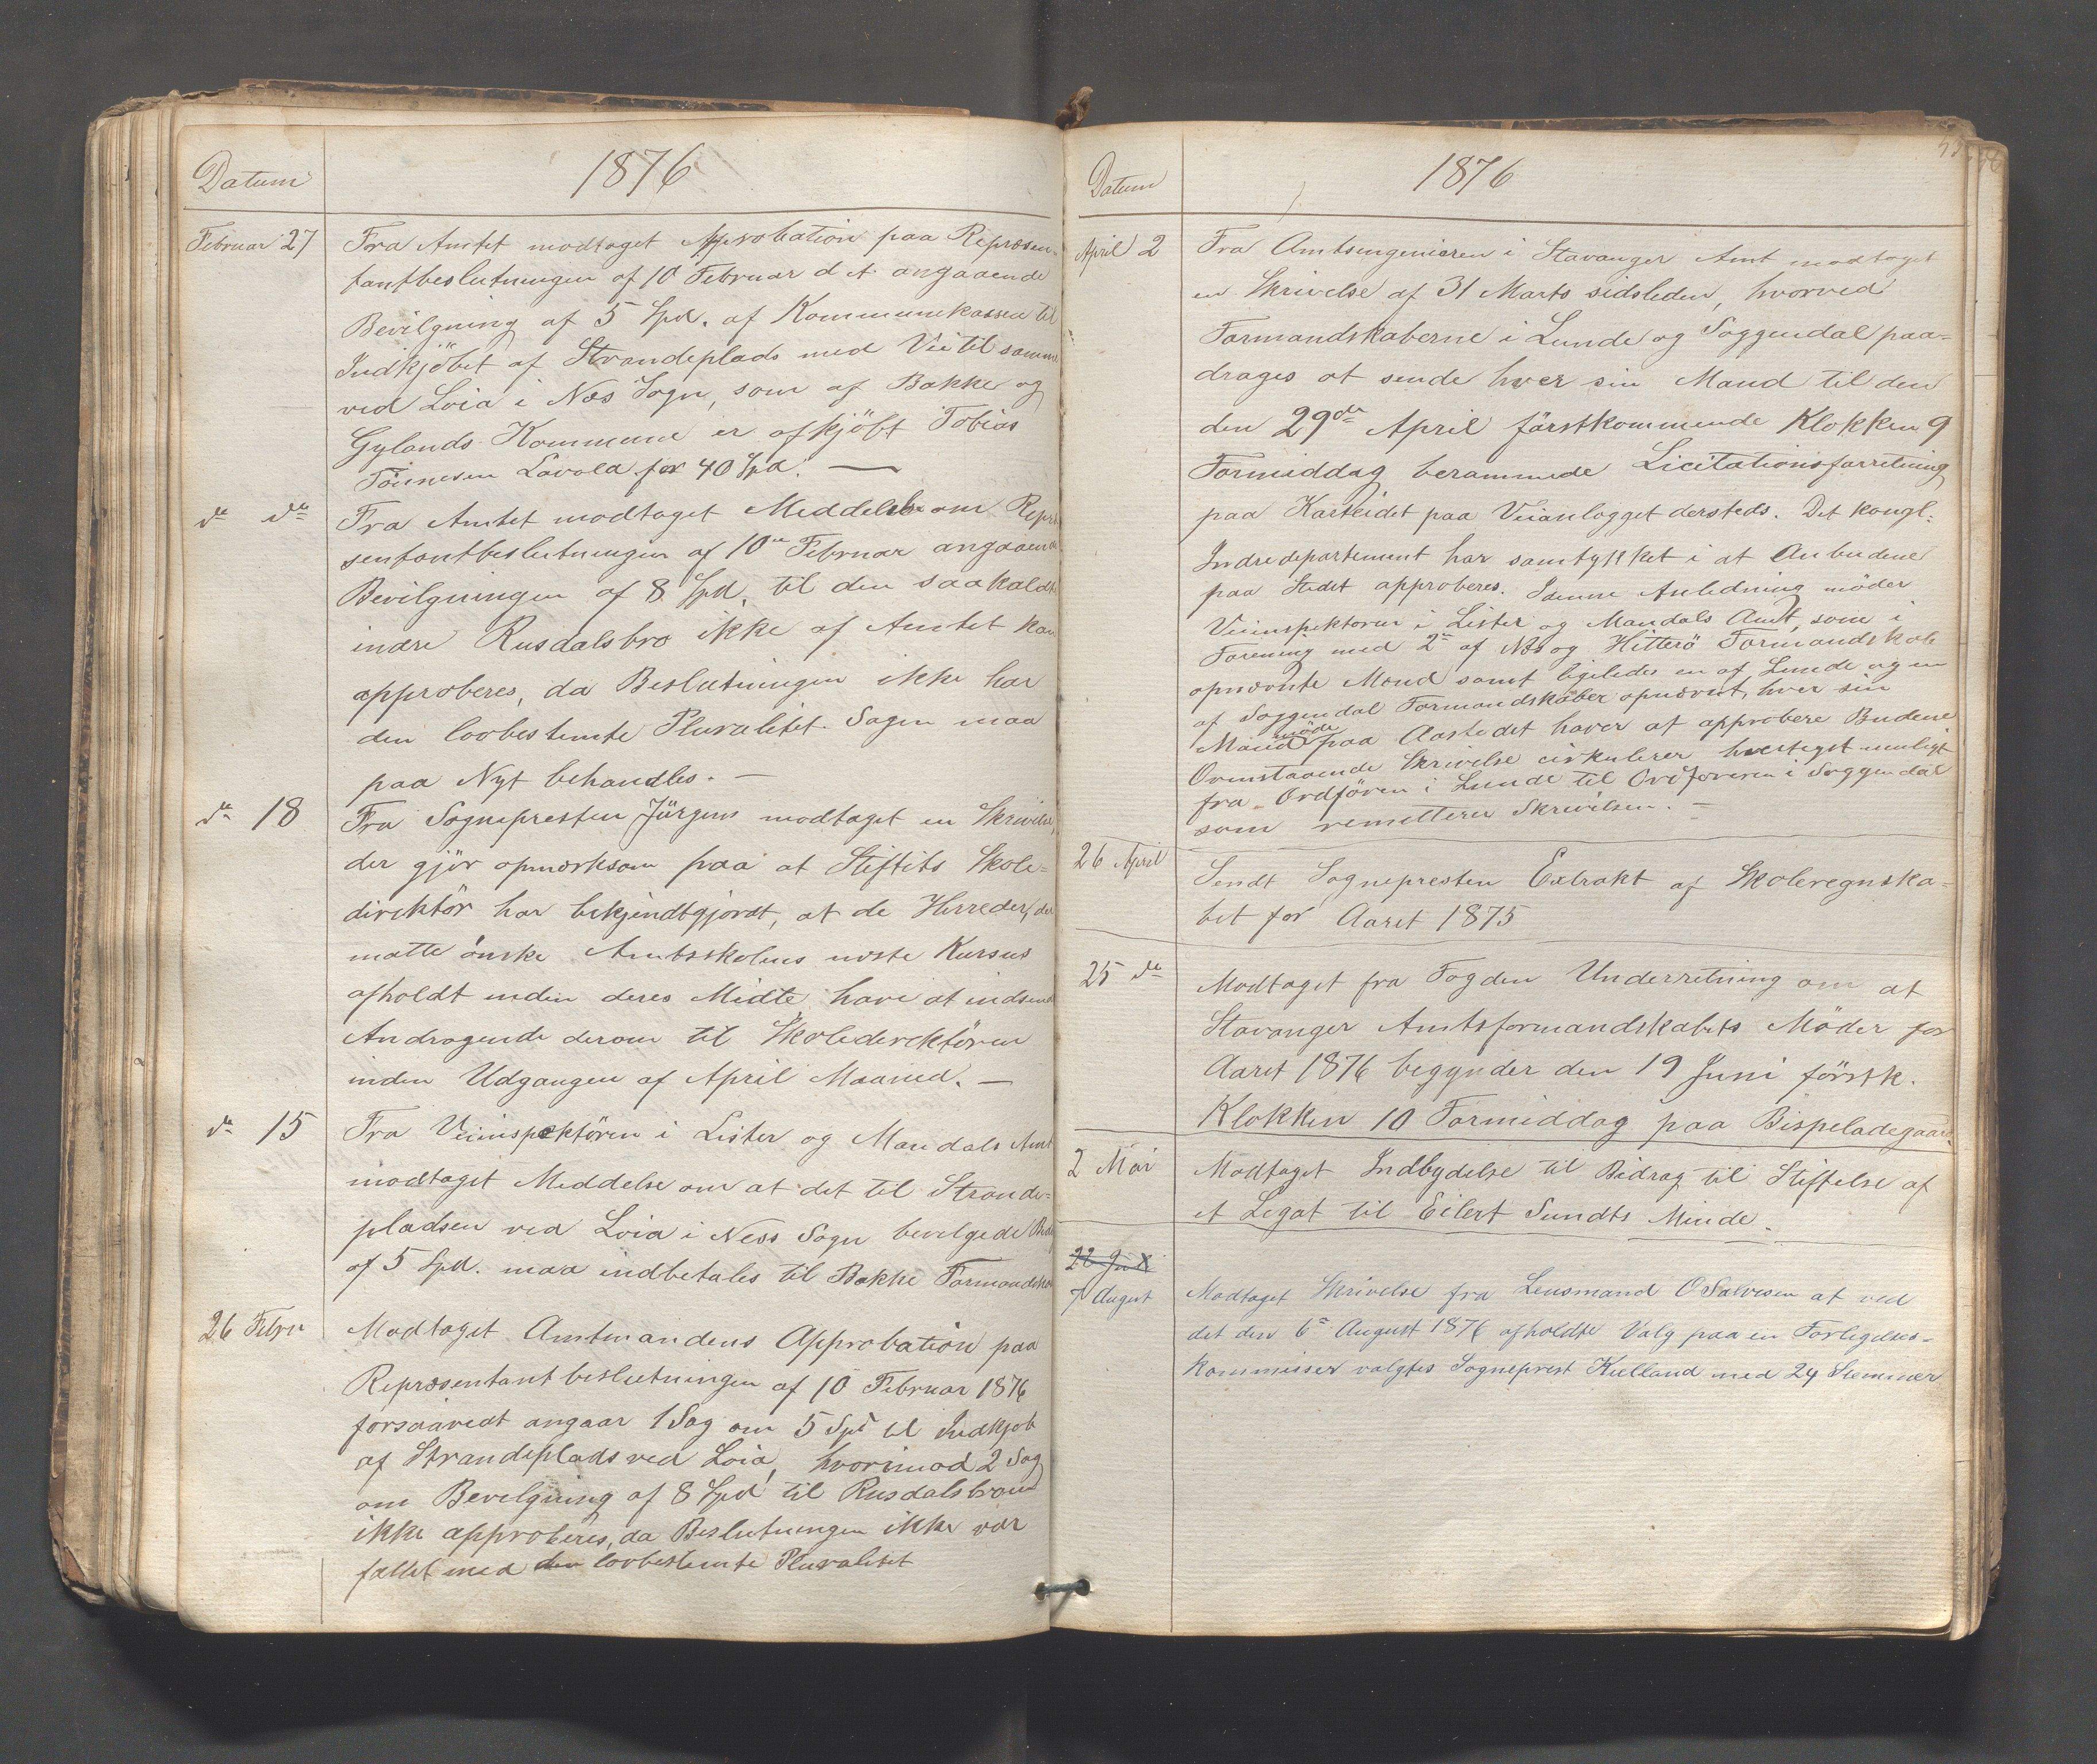 Datum
1876
Februar 27
Fra Amtet modtaget Approbation paa Repræsen-
tantbeslutningen af 10 Februar d. A. angaaende
Bevilgning af 5 Spd. af Kommunekassen til
Indkjöbet af Strandeplads med Vei til samme
ved Loia i Næs Sogn, som af Bakke og
Gylands Kommune er afkjöbt Tobias
Tönnesen Lavold for 40 Spd. —
do do
Fra Amtet modtaget Meddelelse om Repræ
sentantbeslutningen af 10de Februar angaaende
Bevilgningen af 8 Spd. til den saakaldte
indre Rusdalsbro ikke af Amtet kan
approberes, da Beslutningen ikke har
den lovbestemte Pluralitet. Sagen maa
paa Nyt behandles. —
do 18
Fra Sognepresten Jürgens modtaget en Skrivelse,
der gjör opmærksom paa at Stiftets Skole-
direktör har bekjendtgjordt, at de Herreder, der
matte önske Amtsskolens næste Kursus
afholdt inden deres Midte have at indsende
Andragende derom til Skoledirektören
inden Udgangen af April Maaned. —
do 15
Fra Veiinspektören i Lister og Mandals Amt
modtaget Meddelse om at det til Strande-
pladsen ved Loia i Ness Sogn bevilgede
af 5 Spd. maa indbetales til Bakke Formandskab
26 Febru
Modtaget Amtmandens Approbation paa
Repræsentantbeslutningen af 10 Februar 1876
forsaavedt angaar 1 Sag om 5 Spd til Indkjöb
af Strandeplads ved Loia, hvorimod 2 Sag
om Bevelgning af 8 Spd til Rusdalsbroen
ikke approberes, da Beslutningen ikke var
fattet med den lovbestemte Pluralitet
Datum
1876
April 2
Fra Amtsingeniøren i Stavanger Amt modtaget
en Skrivelse af 31 Marts sidsleden, hvorved
Formandskaberne i Lunde og Soggendal paa-
drages at sende hver sin Mand til den
den 29de April förstkommende Klokken 9
Formiddag berammede Licitationsforretning
paa Kasteidet paa Veianlægget dersteds. Det kongl:
Indredepartement har samtykket i at Anbudene
paa Stedet approberes. I denne Anledning möder
Veiinspektoren i Lister og Mandals Amt, som i
Forening med 2de af Næs og Hitterö Formandskab
opnævnte Mænd samt ligeledes en af Lunde og en
af Soggendal Formandskaber opnævnt, hver sin
Mand möde paa Aastedet haver at approbere Budene
Ovenstaaende Skrivelse cirkulerer hurtigst muligt
fra Ordfören i Lunde til Ordföreren i Soggendal
som remitterer Skrivelsen. —
26 April
Sendt Sognepresten Extrakt af Skoleregnska-
bet for Aaret 1875
25 do
Modtaget fra Fogden Underretning om at
Stavanger Amtsformandskabets Möder for
Aaret 1876 begynder den 19 Juni förstk.
Klokken 10 Formiddag paa Bispeladegaard
2 Mai
Modtaget Indbydelse til Bidrag til Stiftelse af
et Legat til Eilert Sundts Minde.
7 August
Modtaget Skrivelse fra Lensmand O Salvesen at ved
det den 6te August 1876 afholdte Valg paa en Forligelses-
kommissær valgtes Sogneprest Kielland med 24 Stemmer